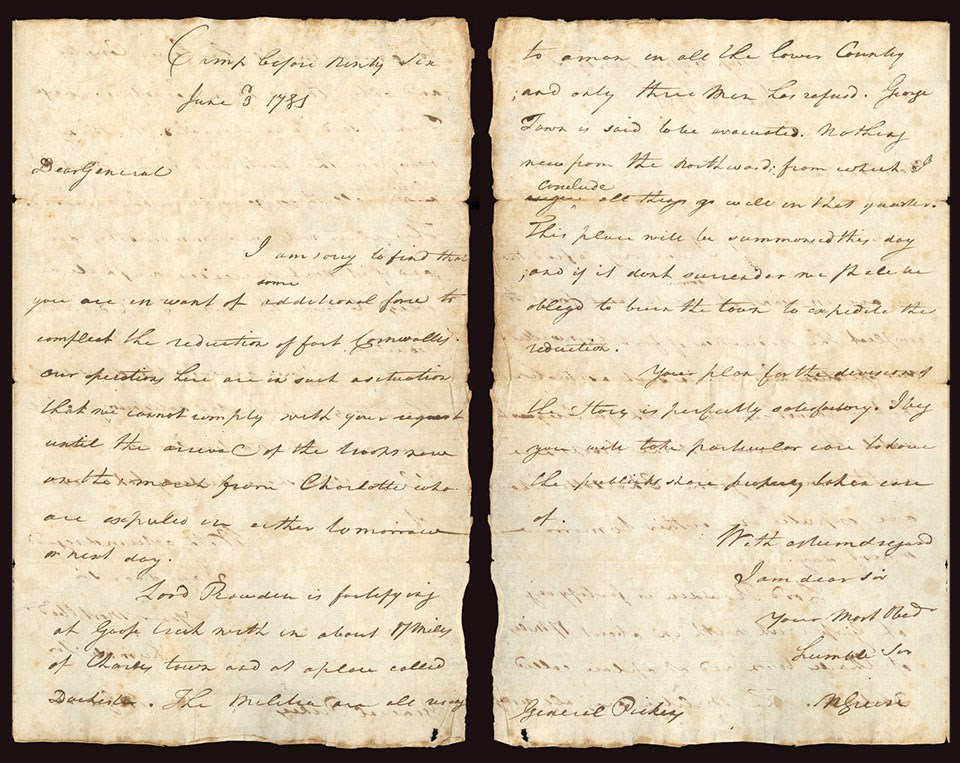 Camp before Ninty Six
June 3 1781
Dear General
I am sorry to find that
some
you are in want of additional force to
compleat the reduction of fort Cornwallis.
our opperations here are in such a situation
that we cannot comply with your request
until the arrival of the troops now
on the march from Charlotte who
are expected in either tomorrow
or next day.
Lord Rawden is fortifying
at Goose Creek with in about 17 Miles
of Charles town and at a place called
Dorchester. The Militia are all rising
to a man in all the lower Country
; and only three Men has refused. George
Town is said to be evacuated. Nothing
new from the Northward; from which I
conclude
all things go well in that quarter.
This place will be summonsed this day
; and if it dont surrender we shall be
obliged to burn the town to expedite the
reduction.
Your plan for the division of
the Stores is perfectly satisfactory. I beg
you will take particular care to have
the publick share properly taken care
of.
With esteem & regard
I am dear Sir
Your Most Obed
humble Ser
NGreene
General Pickens